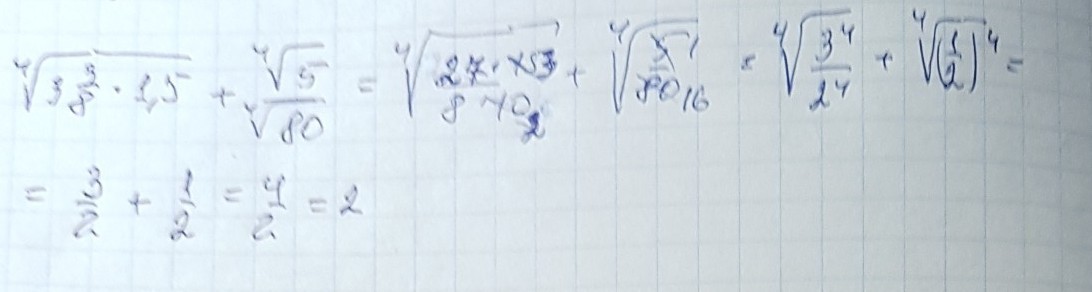 ⁴√(3 3/8 · 1,5) + ⁴√5/⁴√80 = ⁴√(27·15 3/8·10 2) + ⁴√(5 1/80 16) = ⁴√(3⁴/2⁴) + ⁴√(1/2)⁴ =
= 3/2 + 1/2 = 4/2 = 2